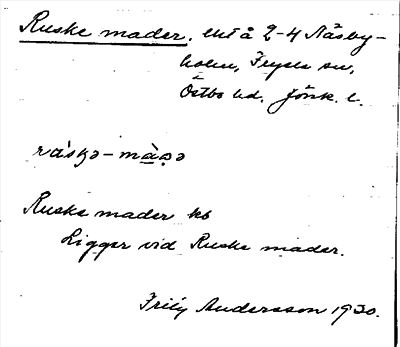 Ruske mader. ent å 2-4 Näsby-
holm, Fryele sn,
Östbo hd. Jönk. l.
Ruske mader kb
Ligger vid Ruske mader.
Andersson 1930.